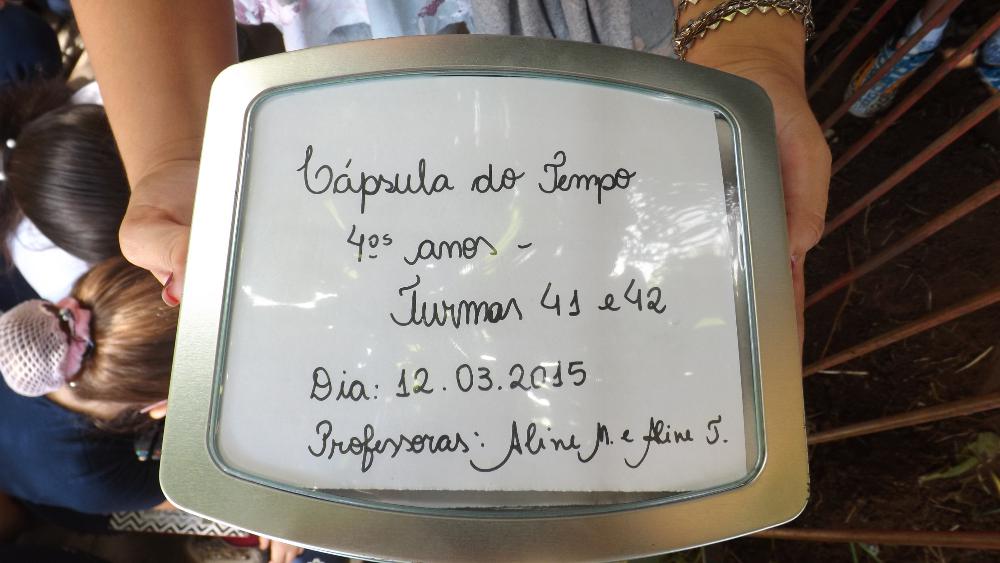 Cápsula do Tempo
4ºs anos -
Turmas 41 e 42
Dia: 12.03.2015
Professoras: Aline M. e Aline T.